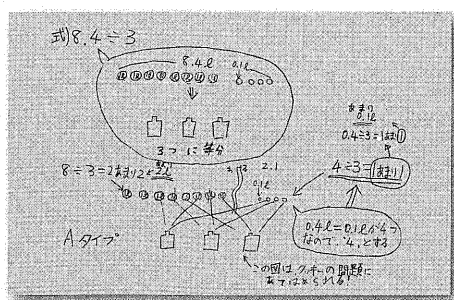 式) 8.4÷3
8.4ℓ 0.1ℓ
3つに等分
8÷3=2あまり2
2.1
0.1ℓ
あまり
0.1ℓ
0.4÷3=1あまり①
4÷3=1あまり1
0.4ℓ=0.1ℓが4つ
なので、"4"とする
Aタイプ
この図はクッキーの問題に
あてはめられる!